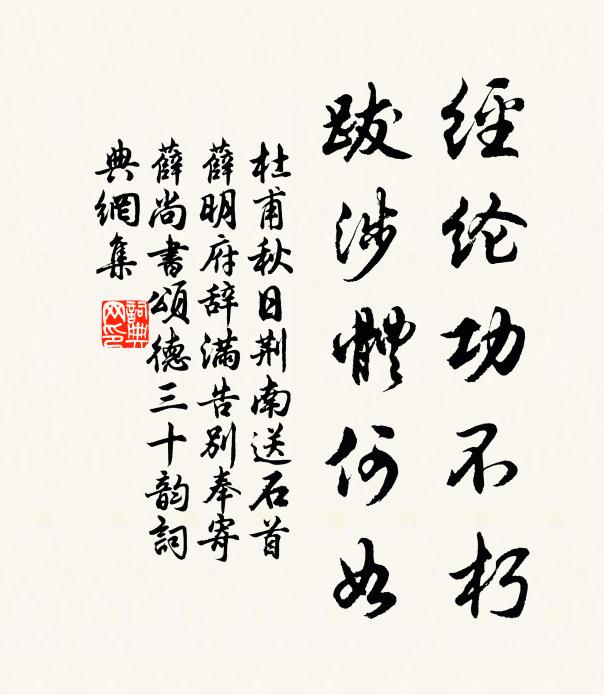 經纶功不朽
跋涉體何如
杜甫秋日荆南送石首
薛明府辞滿告别奉寄
薛尚書頌德三十韵詞
典網集
詞典
网印